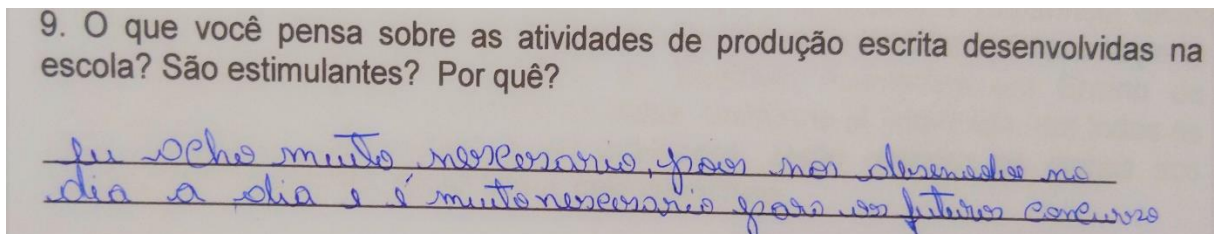 9. O que você pensa sobre as atividades de produção escrita desenvolvidas na
escola? São estimulantes? Por quê?
Eu acho muito nescesario, pois nos desenvolve no
dia a dia e é muito nescesario para os futuros concurso